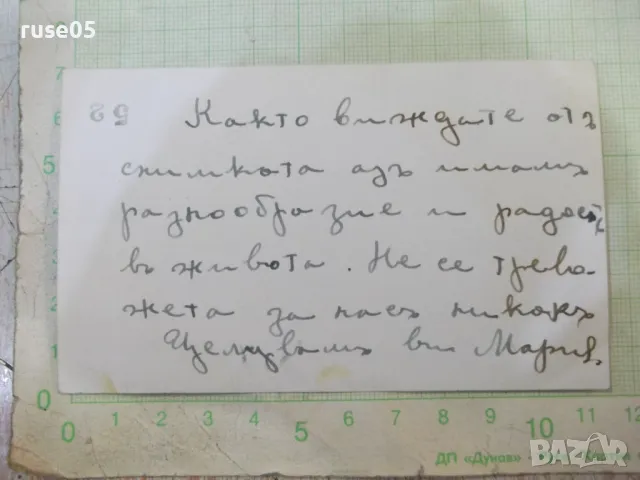 ruse05
59
Както виждате отъ
снимката азъ имамъ
разнообразие и радость
въ живота. Не се трево-
жета за насъ никакъ
Целувамъ ви Мария.
7
6
5
4
3
2
1
0
0 1 2 3 4 5 6 7 8 9 10 11 12
ДП «Дунав»
BAZAR
bg